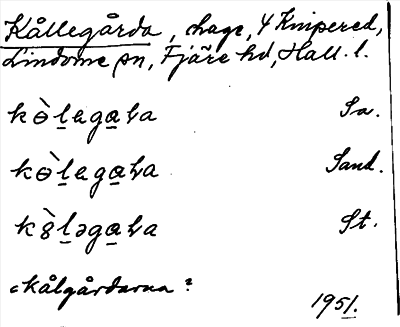 Kållegårda, hage, 4 Knipered,
Lindome sn, Fjäre hd, Hall. l.
kɵ̀l̲ega̲ɂa Sa.
kɵ̀l̲ega̲ɂa Sand.
k8̀l̲əga̲ɂa St.
"kålgårdarna"?
1951.